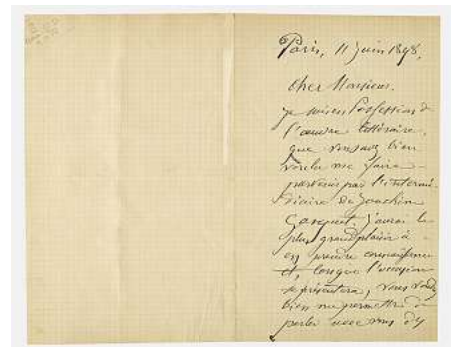 Paris, 11 juin 1898,
cher Monsieur,
je suis en Possession de
l'œuvre littéraire,
que vous avez bien
voulu me faire
parvenir par l'intermé-
diaire de Joachim
Gasquet, j'aurai le
plus grand plaisir à
en prendre connaissance
et, lorsque l'occasion
se présentera, vous voudrez
bien me permettre de
parler avec vous